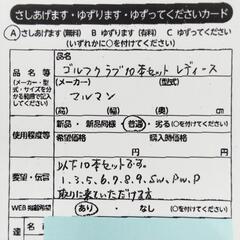 さしあげます・ゆずります・ゆずってくださいカード
Ⓐ さしあげます (無料) B ゆずります (有料) C ゆずってください
(いずれかに○を付けてください)
品名等
(メーカー・型式・サイズを分かる範囲で記入してください)
(品名)
ゴルフクラブ10本セット レディース
(メーカー) (型式)
マルマン
(高) (幅) (奥) cm
使用程度等
新品・新品同様・普通・劣る (○を付けてください)
希望価格 円 購入時価格 円
要望・伝言
以下10本セットです。
1.3.5.6.7.8.9.SW.PW.P
取りに来ていただける方
WEB掲載希望
あり・なし (○を付けてください)
達 名